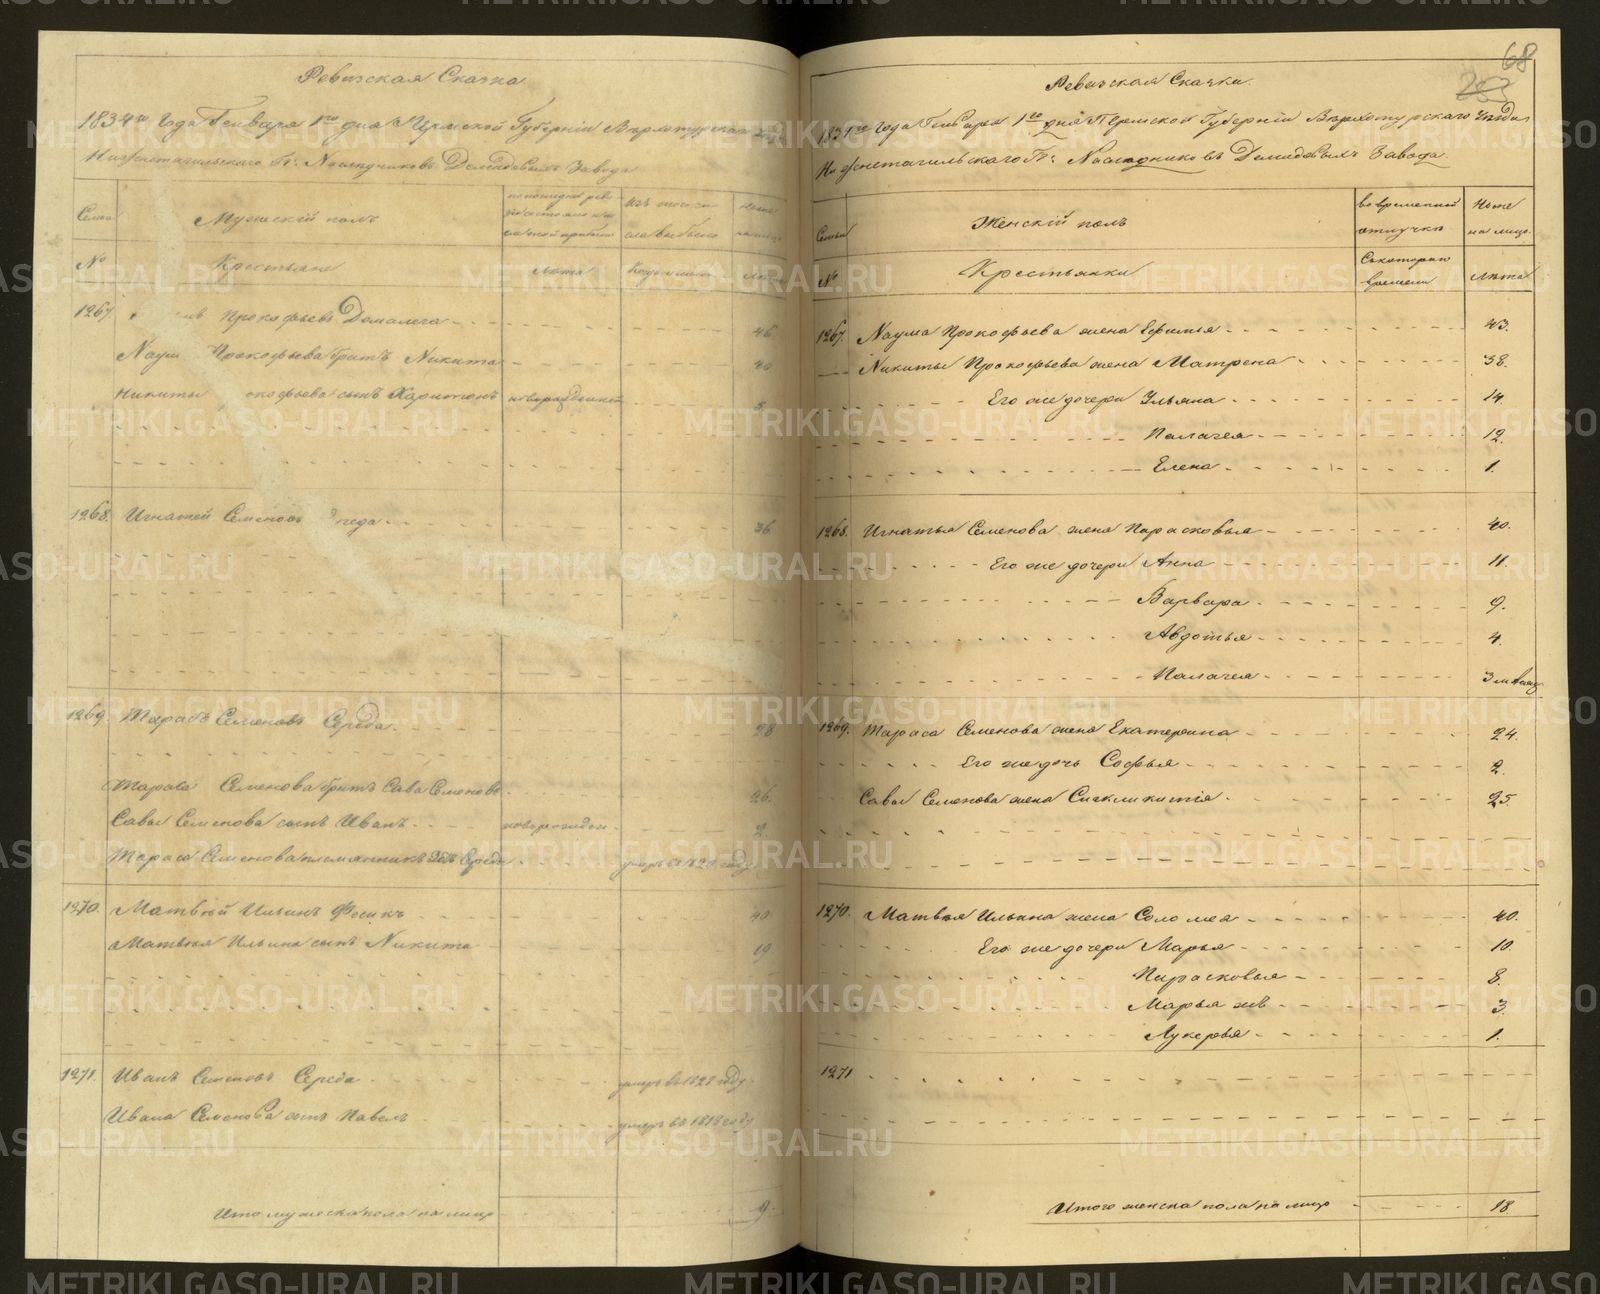 Ревизская Сказка
1834го Года Генваря 1го дня Пермской Губернии Верхотурскаго
Нижнетагильскаго Гг: Наследниковъ Демидовыхъ Завода
Семьи
Мужескій полъ
Ныне
№
Крестьяне
Лета
1267. Прокофьевъ 46
Наум Прокофьева братъ Никита 40
Никиты сынъ Харитонъ новорожденной 5
1268. Игнатей Семеновъ 36
1269. Тарасъ Семеновъ Середа 28
Тараса Семенова братъ Сава Семеновъ 26
Савы Семенова сынъ Иванъ новорожден 2
Тараса Семенова племянникъ Середа умеръ въ 1820 году
1270. Матвей Ильинъ 40
Матвея Ильина сынъ Никита 19
1271. Иванъ Семеновъ Середа
Ивана Семенова сынъ Павелъ умеръ въ 1818 году
Итого мужеска пола на лицо 9
68
Ревизская Сказка
1834го Года Генваря 1го дня Пермской Губерніи Верхотурскаго Уезда
Нижнетагильскаго Гг: Наследниковъ Демидовыхъ Завода
Семьи
Женскій полъ
во временной отлучке
Ныне на лицо
№
Крестьянки
Съ котораго времени
Лета
1267. Наума Прокофьева жена Ефимья 43.
Никиты Прокофьева жена Матрена 38.
Его же дочери Ульяна 14.
Палагея 12.
Елена 1.
1268. Игнатья Семенова жена Парасковья 40.
Его же дочери Анна 11.
Варвара 9.
Авдотья 4.
Палагея 3 месяц
1269. Тараса Семенова жена Екатерина 24.
Его же дочь Софья 2.
Савы Семенова жена Сигклитикія 25.
1270. Матвея Ильина жена Соломея 40.
Его же дочери Марья 10.
Парасковья 8.
Марья же 3.
Лукерья 1.
1271
Итого женска пола на лицо 18.
METRIKI.GASO-URAL.RU